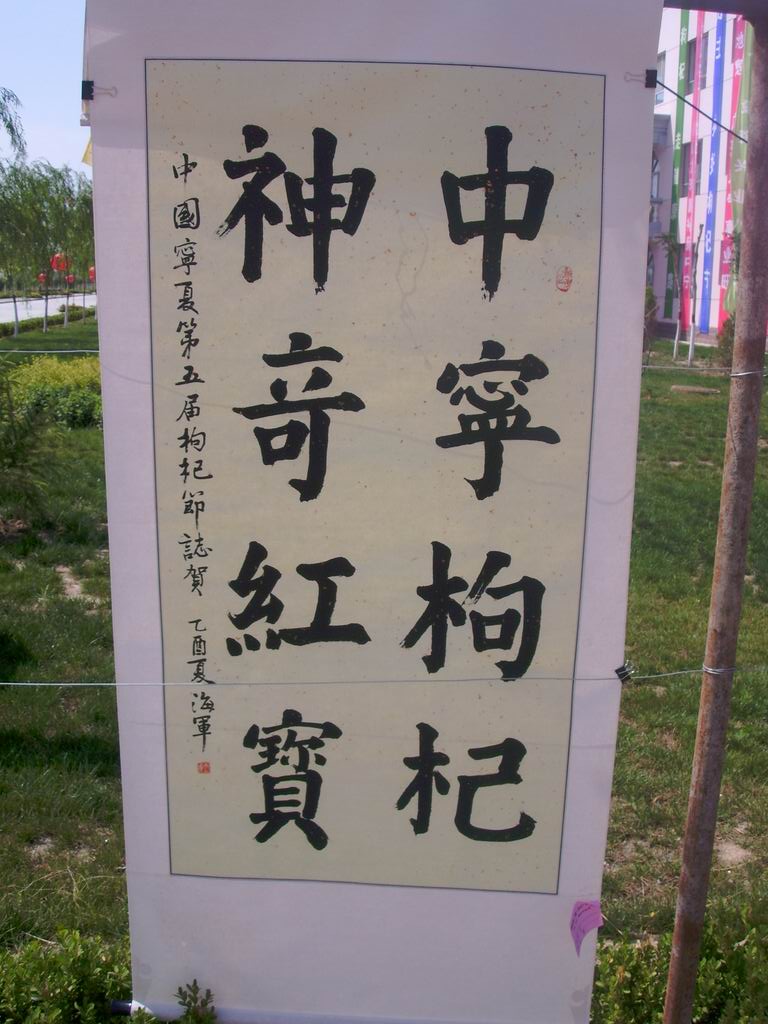 中寧枸杞
神奇紅寶
中國寧夏第五届枸杞節誌賀 乙酉夏海軍